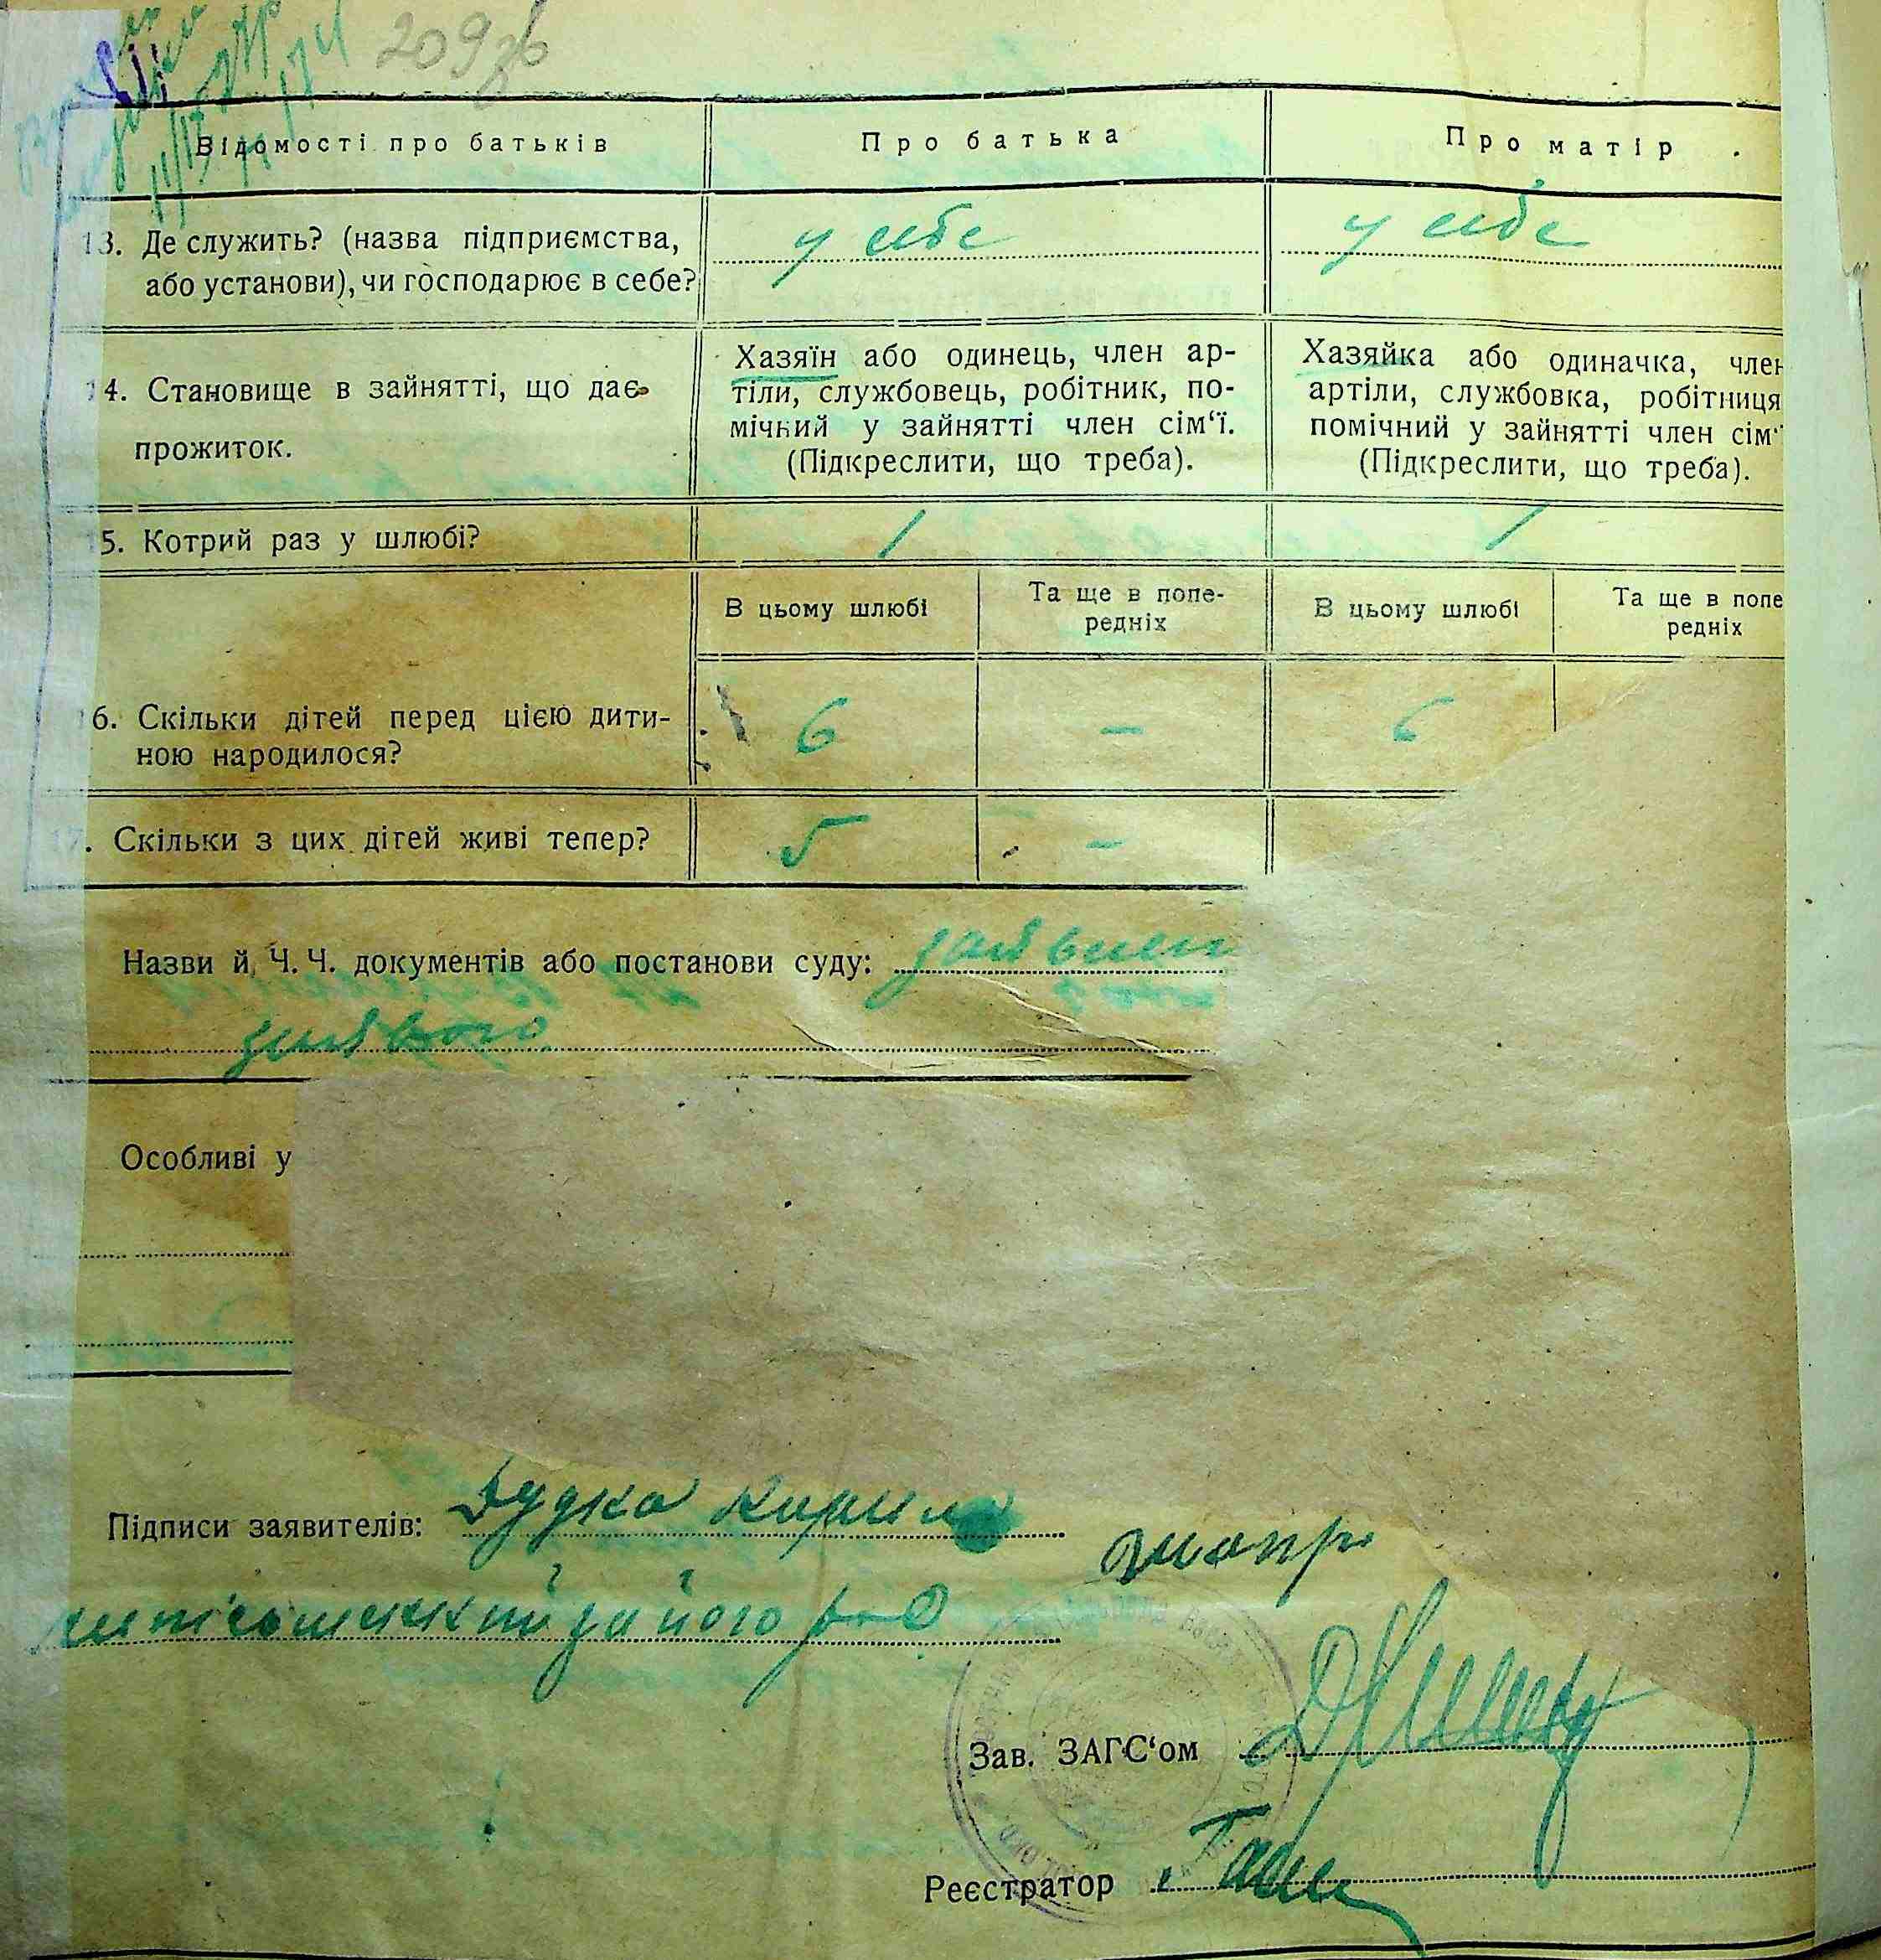 209зв
Відомості про батьків
Про батька
Про матір
13. Де служить? (назва підприємства,
або установи), чи господарює в себе?
у себе
у себе
14. Становище в зайнятті, що дає
прожиток.
Хазяїн або одинець, член ар-
тіли, службовець, робітник, по-
мічний у зайнятті член сім‘ї.
(Підкреслити, що треба).
Хазяйка або одиначка, член
артіли, службовка, робітниця
помічний у зайнятті член сім‘
(Підкреслити, що треба).
5. Котрий раз у шлюбі?
1
1
В цьому шлюбі
Та ще в попе-
редніх
В цьому шлюбі
Та ще в попе
редніх
16. Скільки дітей перед цією дити-
ною народилося?
6
–
6
17. Скільки з цих дітей живі тепер?
5
–
Назви й Ч. Ч. документів або постанови суду:
Особливі у
Підписи заявителів: Дудка Кирило
за його
Зав. ЗАГС‘ом
Реєстратор